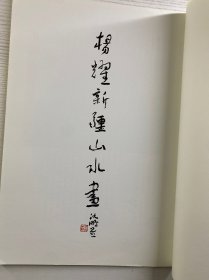 楊耀新疆山水畫